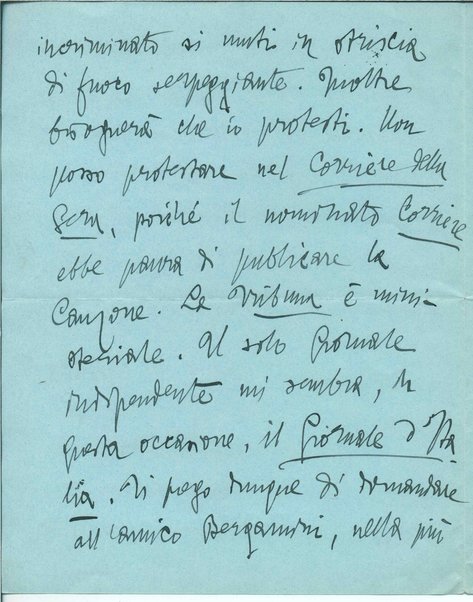 incriminato si muti in striscia
di fuoco serpeggiante. Inoltre
bisognerà che io protesti. Non
posso protestare nel Corriere della
Sera, poiché il nominato Corriere
ebbe paura di publicare la
Canzone. La Tribuna è mini-
steriale. Il solo Giornale
indipendente mi sembra, in
questa occasione, il Giornale d'Ita-
lia. Ti prego dunque di domandare
all'amico Bergamini, nella più